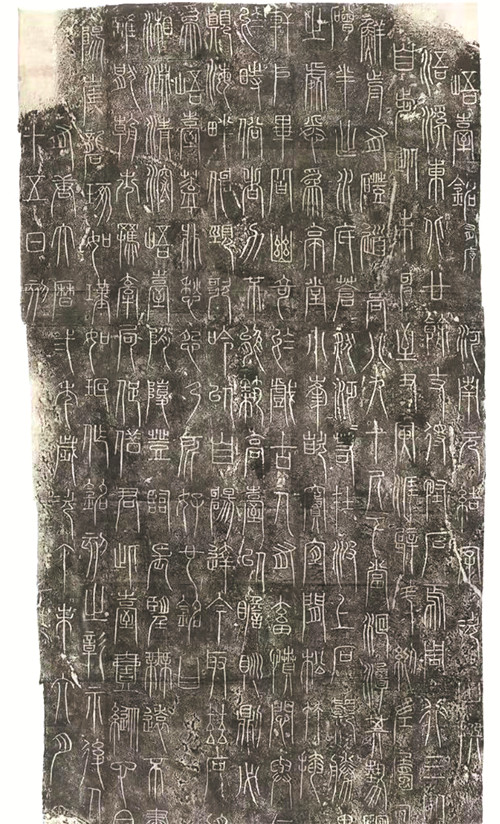 峿臺銘有序 河南元結字次
浯溪東北廿餘丈得怪石焉周行三四
百步從未申至丑寅涯壁斗絕左屬回
鮮前有磴道高八九十尺下當洄潭其勢
磳半出水底蒼然泛泛若在波上石巔勝
之處悉為亭堂小峰嵌竇宜間松竹掩
軒戶畢皆幽奇於戲古人有畜憤悶與
於時俗者力不能築高臺以瞻眺則必
巔海畔伸頸歌吟以自暢達今取茲石
為峿臺蓋非愁怨乃所好也銘曰
湘淵清深峿臺陗陵登臨長望無遠不盡
誰厭朝市羈牽局促借君此臺壹縱心目
陽崖礱琢如瑾如珉作銘刻之彰示後人
有唐大曆二年歲次丁未六月
十五日刻